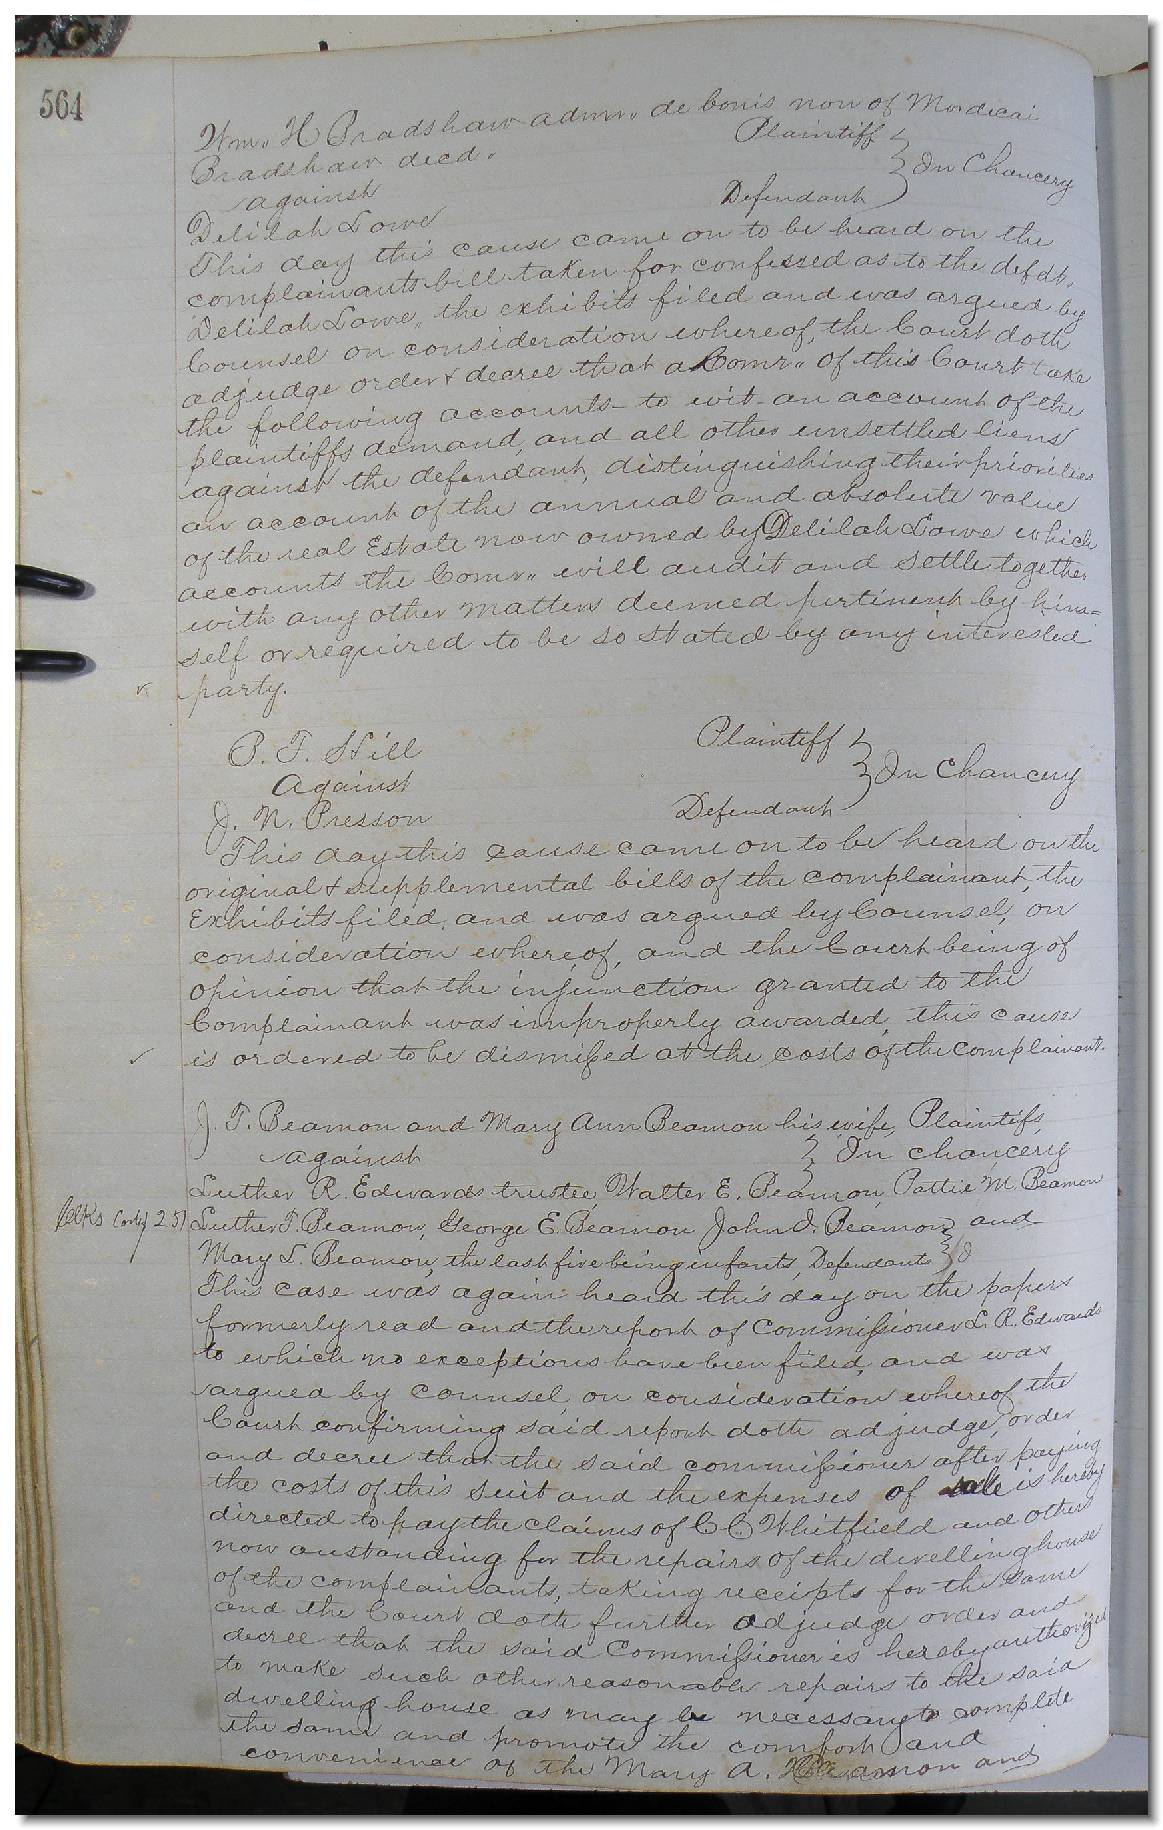 564
Wm. H Bradshaw admr. de bonis non of Mordicai
Bradshaw decd. Plaintiff
against In Chancery
Delilah Lowe Defendant
This day this cause came on to be heard on the
complainants bill taken for confessed as to the defdt.
Delilah Lowe, the exhibits filed and was argued by
Counsel on consideration whereof, the Court doth
adjudge order & decree that a Comr. of this Court take
the following accounts to wit - an account of the
plaintiffs demand, and all other unsettled liens
against the defendant, distinguishing their priorities
an account of the annual and absolute value
of the real Estate now owned by Delilah Lowe which
accounts the Comr. will audit and settle together
with any other matters deemed pertinent by him=
self or required to be so stated by any interested
party.
P. T. Hill Plaintiff
Against In Chancery
J. N. Presson Defendant
This day this cause came on to be heard on the
original & supplemental bills of the complainant, the
Exhibits filed, and was argued by Counsel, on
consideration whereof, and the Court being of
opinion that the injunction granted to the
Complainant was improperly awarded, this cause
is ordered to be dismissed at the costs of the complainant.
J. T. Beamon and Mary Ann Beamon his wife, Plaintifs,
against In chancery
Luther R. Edwards trustee, Walter E. Beamon, Pattie M. Beamon
Luther T. Beamon, George E. Beamon John J. Beamon and
Mary L. Beamon, the last five being infants, Defendants
This case was again heard this day on the papers
formerly read and the report of Commissioner L. R. Edwards
to which no exceptions have been filed, and was
argued by counsel, on consideration whereof the
Court confirming said report doth adjudge, order
and decree that the said commissioner after paying
the costs of this suit and the expenses of sale is hereby
directed to pay the claims of C C Whitfield and others
now oustanding for the repairs of the dwelling house
of the complainants, taking receipts for the same
and the Court doth further adjudge order and
decree that the said Commissioner is hereby authorized
to make such other reasonable repairs to the said
dwelling house as may be necessary to complete
the same and promote the comfort and
convenience of the Mary A. Beamon and